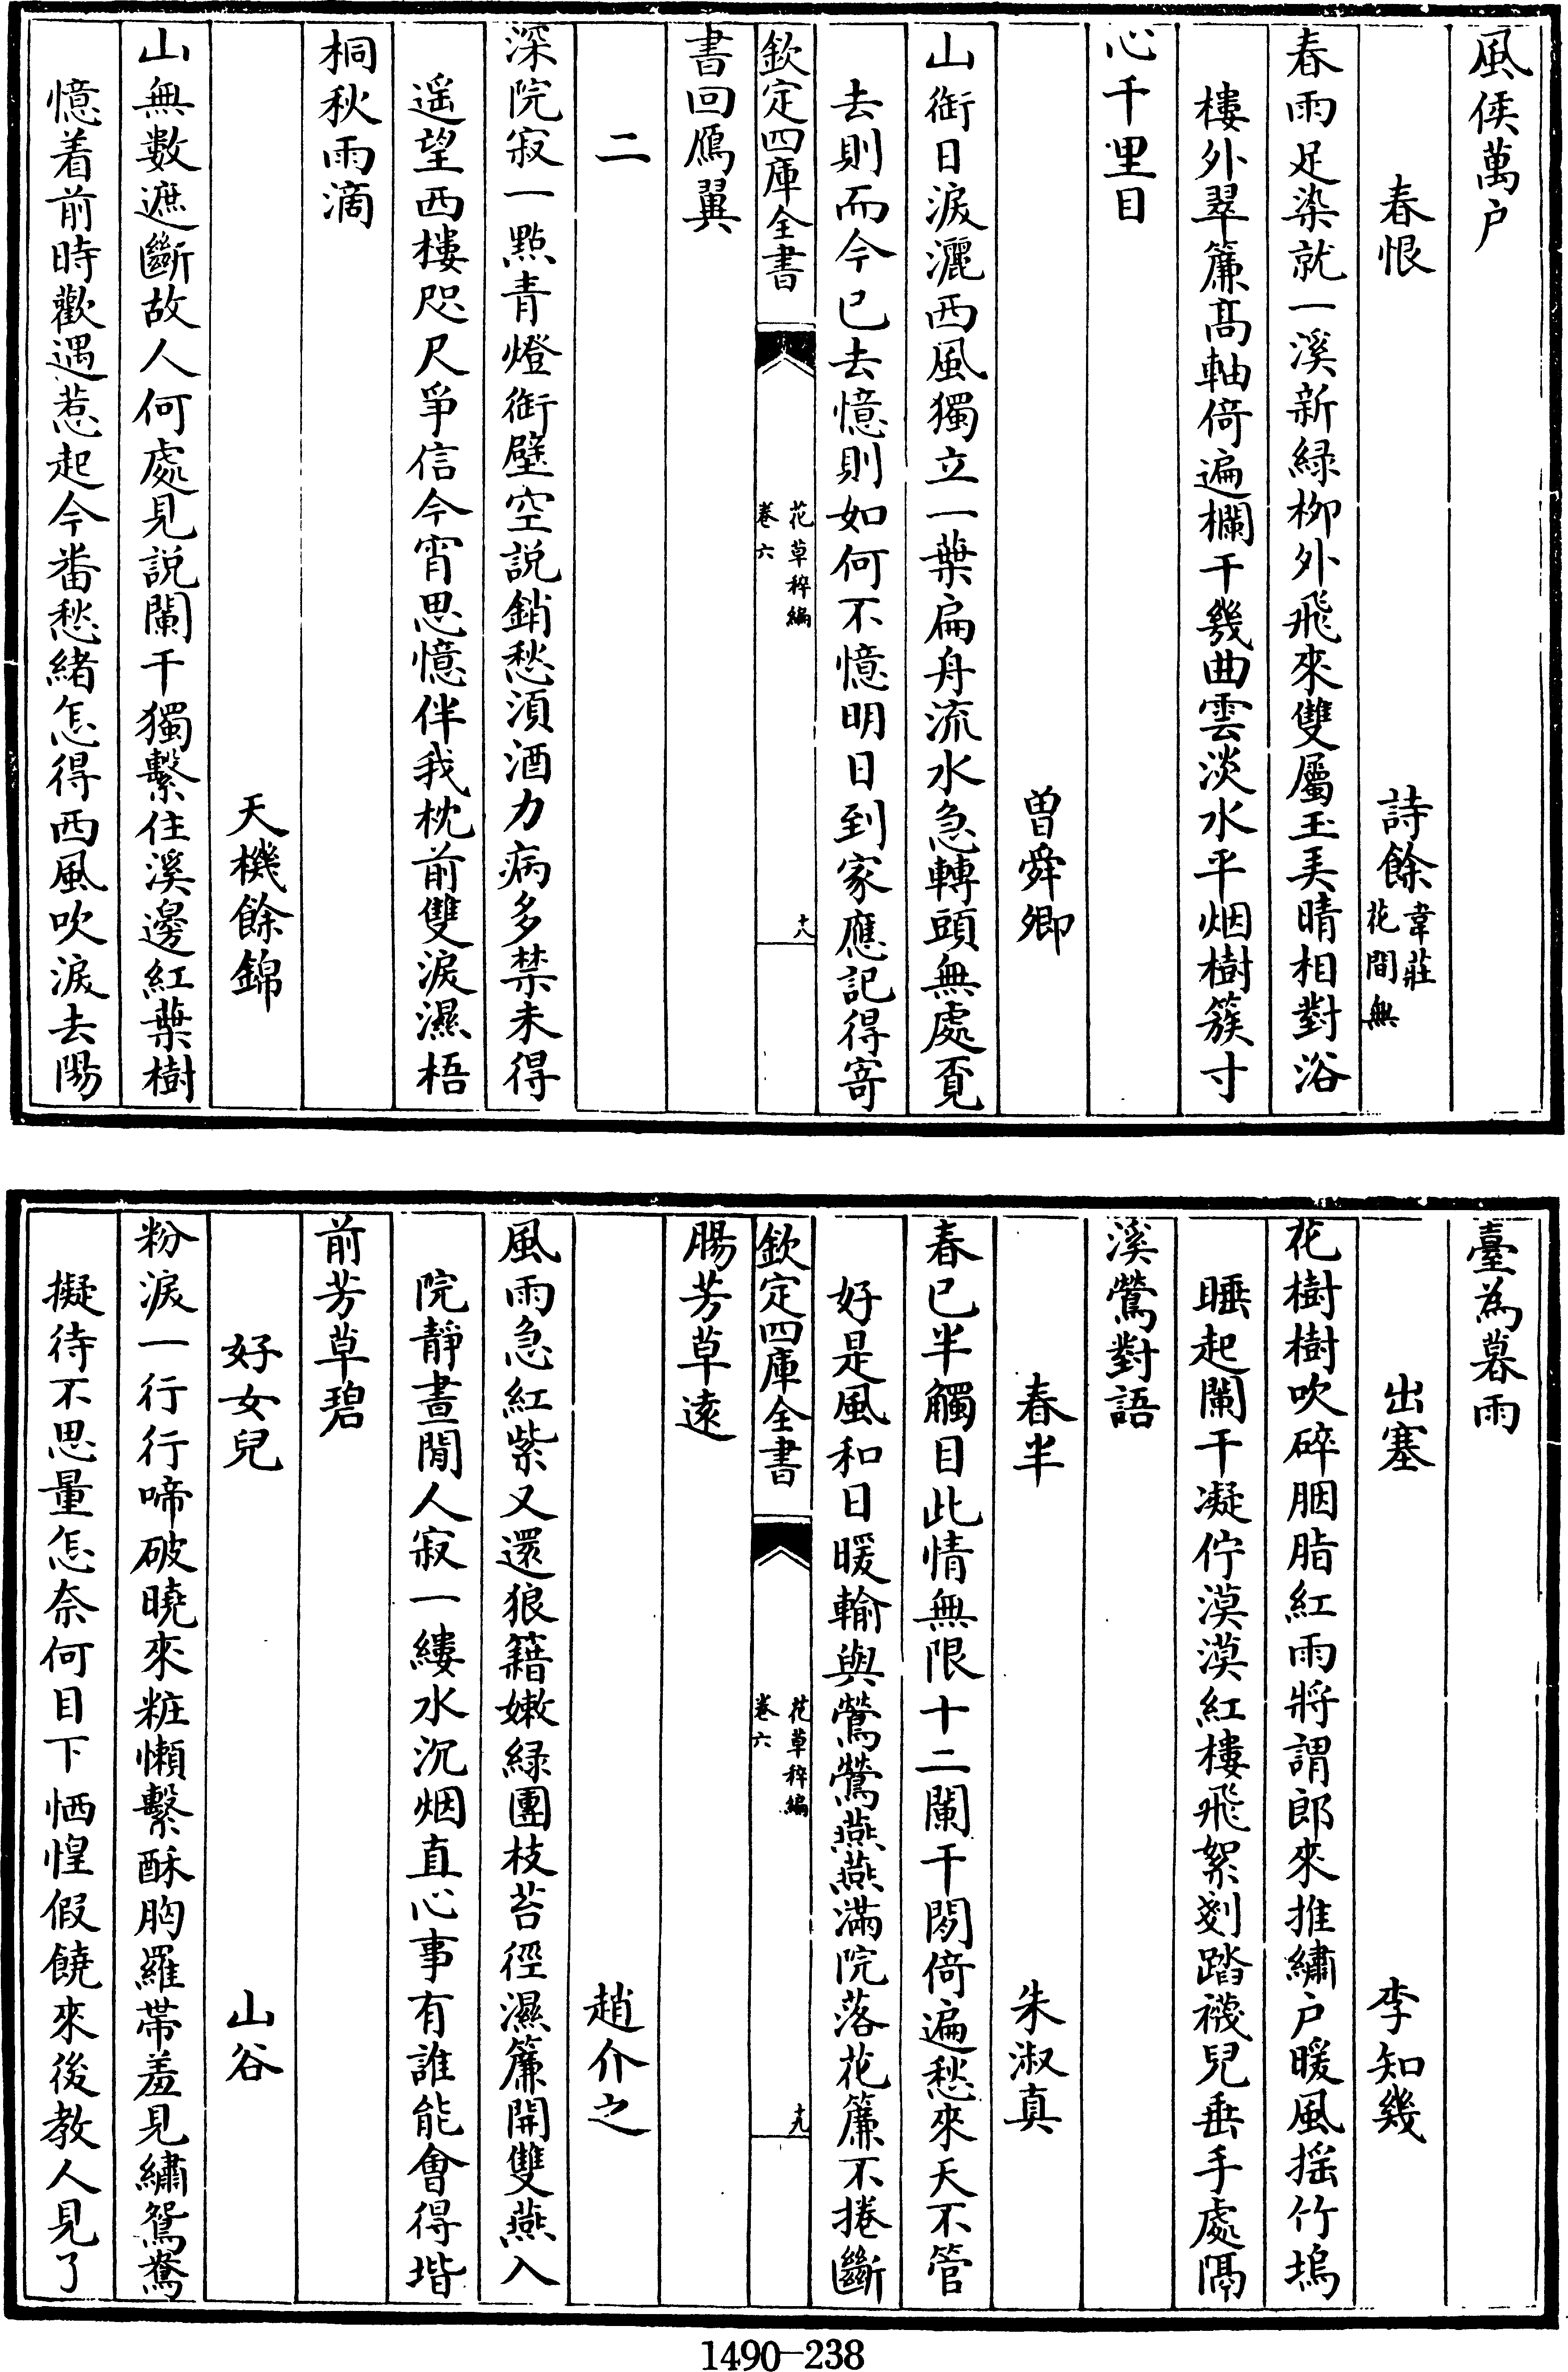 風侯萬户
春恨 詩餘 韋莊花間無
春雨足染就一溪新緑栁外飛來雙屬玉美晴相對浴
樓外翠簾髙軸倚遍欄干幾曲雲淡水平烟樹簇寸
心千里目
曽舜卿
山銜日淚灑西風獨立一葉扁舟流水急轉頭無處覔
去則而今已去憶則如何不憶明日到家應記得寄
欽定四庫全書 花草稡編 卷六 十八
書回鴈翼
二
深院寂一㸃青燈銜壁空説銷愁湏酒力病多禁未得
遥望西樓咫尺爭信今宵思憶伴我枕前雙淚濕梧
桐秋雨滴
天機餘錦
山無數遮斷故人何處見説闌干獨繫住溪邊紅葉樹
憶着前時歡遇惹起今畨愁緒怎得西風吹淚去陽
臺為暮雨
出塞 李知幾
花樹樹吹碎胭脂紅雨將謂郎來推繡户暖風揺竹塢
睡起闌干凝佇漠漠紅樓飛絮剗踏襪兒垂手處隔
溪鶯對語
春半 朱淑真
春已半觸目此情無限十二闌干閒倚遍愁來天不管
好是風和日暖輸與鶯鶯燕燕滿院落花簾不捲斷
欽定四庫全書 花草稡編 卷六 十九
腸芳草逺
趙介之
風雨急紅紫又還狼籍嫩緑團枝苔徑濕簾開雙燕入
院靜晝閒人寂一縷水沉烟直心事有誰能會得堦
前芳草碧
好女兒 山谷
粉淚一行行啼破曉來粧懶繫酥胸羅帶羞見繡鴛鴦
擬待不思量怎奈何目下恓惶假饒來後教人見了
1490—238